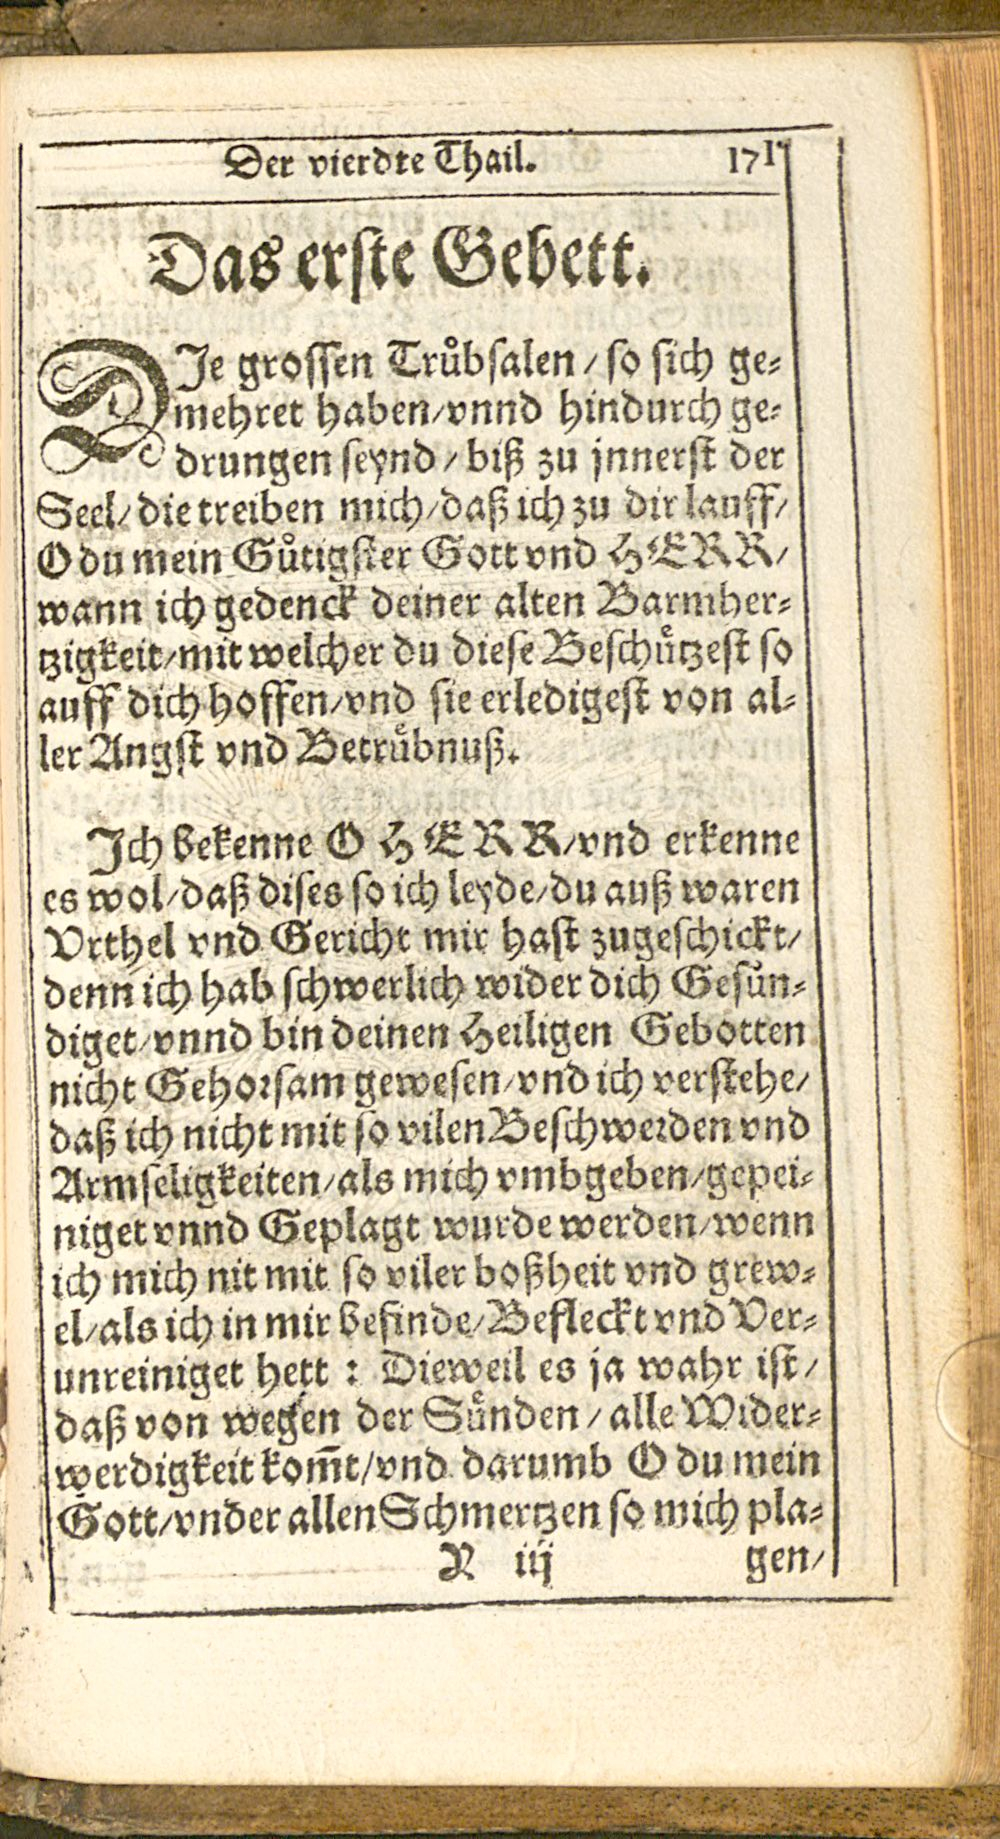 Der vierdte Thail. 171
Das erste Gebett.
DIe grossen Trůbsalen / so sich ge⸗
mehret haben/vnnd hindurch ge⸗
drungen seynd / biß zu jnnerst der
Seel/ die treiben mich/daß ich zu dir lauff/
O du mein Gůtigster Gott vnd HERR/
wann ich gedenck deiner alten Barmher⸗
tzigkeit/mit welcher du diese Beschůtzest so
auff dich hoffen/vnd sie erledigest von al⸗
ler Angst vnd Betrůbnuß.
Ich bekenne O HERR/vnd erkenne
es wol/daß dises so ich leyde/du auß waren
Vrthel vnd Gericht mir hast zugeschickt/
denn ich hab schwerlich wider dich Gesůn⸗
diget/vnnd bin deinen Heiligen Gebotten
nicht Gehorsam gewesen/vnd ich verstehe/
daß ich nicht mit so vilen Beschwerden vnd
Armseligkeiten/als mich vmbgeben/gepei⸗
niget vnnd Geplagt wurde werden/wenn
ich mich nit mit so viler boßheit vnd grew⸗
el/als ich in mir befinde/Befleckt vnd Ver⸗
unreiniget hett : Dieweil es ja wahr ist/
daß von wegen der Sůnden / alle Wider⸗
werdigkeit kom̃t/vnd darumb O du mein
Gott/vnder allen Schmertzen so mich pla⸗
R iij gen/